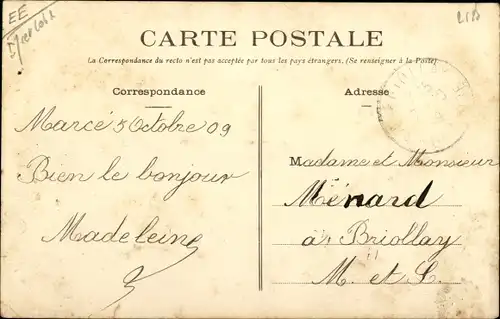 EE
CARTE POSTALE
La Correspondance du recto n'est pas acceptée par tous les pays étrangers. (Se renseigner à la Poste)
Correspondance
Marcé 5 Octobre 09
Bien le bonjour
Madeleine
Adresse
Madame et Monsieur
Ménard
à Briollay
M. et L.